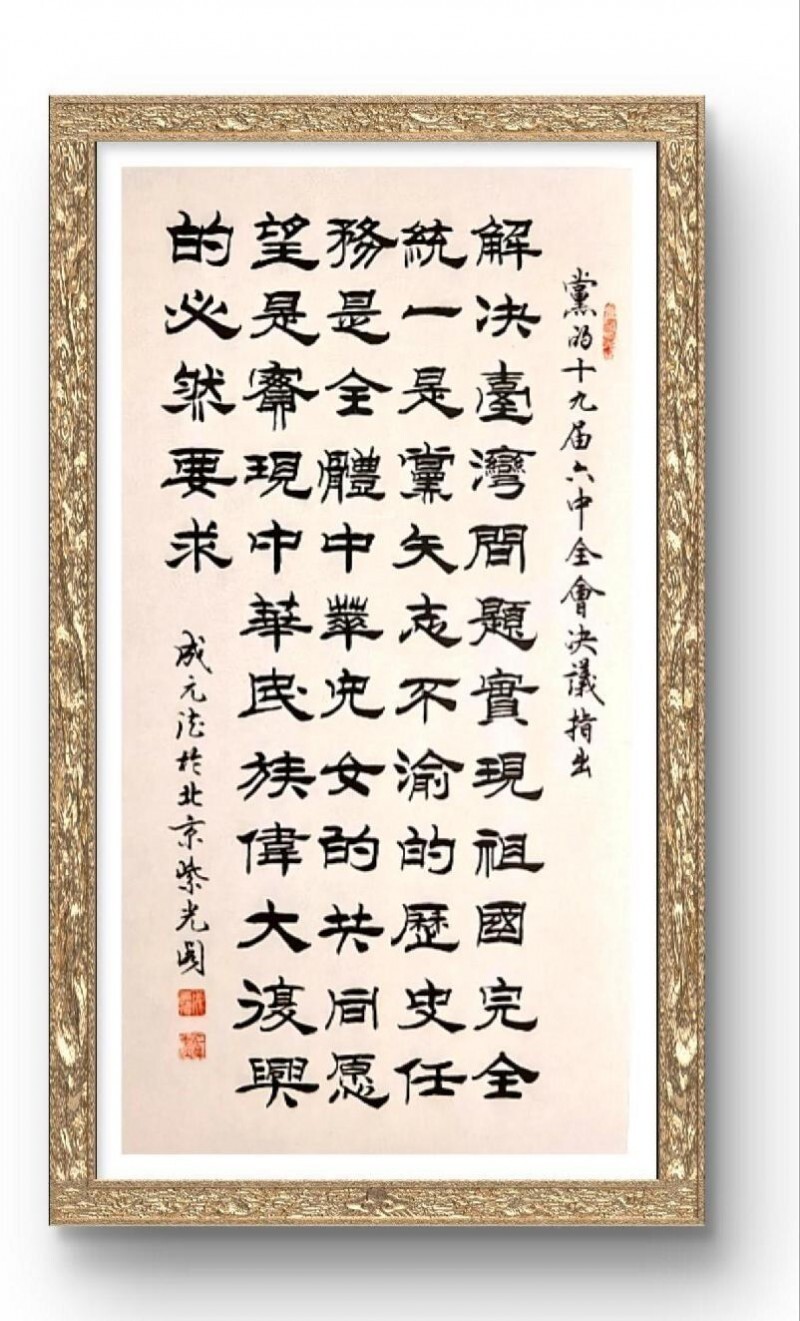 黨的十九届六中全會决議指出
解决臺灣問題實現祖國完全
統一是黨矢志不渝的歷史任
務是全體中華兒女的共同愿
望是實現中華民族偉大復興
的必然要求
成元法於北京紫光閣